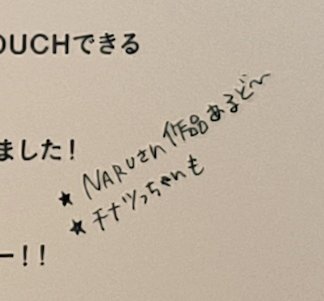 OUCHできる
ました！
★ NARUさん作品あるど〜
★ チナツっちゃんも
ー！！